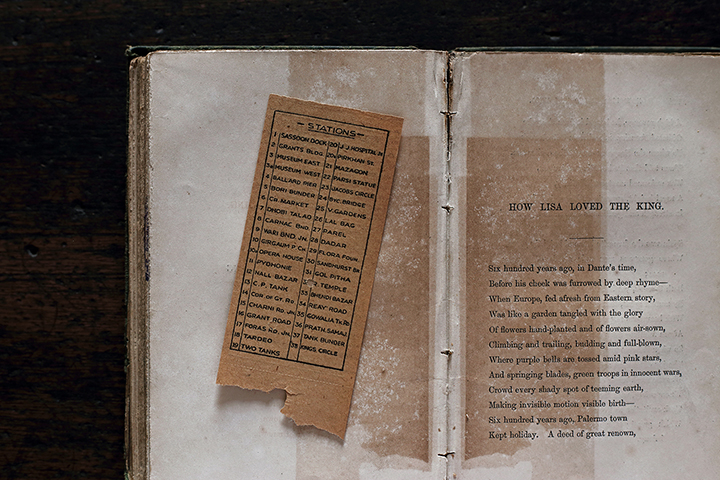 STATIONS
1 SASSOON DOCK
2 GRANTS BLDG.
3 MUSEUM EAST
3a MUSEUM WEST
4 BALLARD PIER
5 BORI BUNDER
6 CR. MARKET
7 DHOBI TALAO
8 CARNAC BND.
9 WARI BND. JN.
10 GIRGAUM P. CH.
10a OPERA HOUSE
11 PYDHONIE
12 NALL BAZAR
13 C. P. TANK
14 COR. OF GT. RD
15 CHARNI RD. JN.
16 GRANT ROAD
17 FORAS RD. JN.
18 TARDEO
19 TWO TANKS
20 J. J. HOSPITAL
20a PIRKHAN ST.
21 MAZAGON
22 PARSI STATUE
23 JACOBS CIRCLE
24 BYC. BRIDGE
25 V. GARDENS
26 LAL BAG
27 PAREL
28 DADAR
29 FLORA FOUN.
30 SANDHURST BR.
31 GOL PITHA
R. TEMPLE
33 BHENDI BAZAR
34 REAY ROAD
35 GOWALIA TK. RD
36 PRATH. SAMAJ
37 TANK BUNDER
38 KINGS CIRCLE
HOW LISA LOVED THE KING.
Six hundred years ago, in Dante's time,
Before his cheek was furrowed by deep rhyme—
When Europe, fed afresh from Eastern story,
Was like a garden tangled with the glory
Of flowers hand-planted and of flowers air-sown,
Climbing and trailing, budding and full-blown,
Where purple bells are tossed amid pink stars,
And springing blades, green troops in innocent wars,
Crowd every shady spot of teeming earth,
Making invisible motion visible birth—
Six hundred years ago, Palermo town
Kept holiday. A deed of great renown,